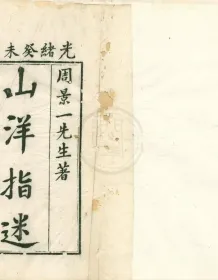 光緒癸未
周景一先生著
山洋指迷